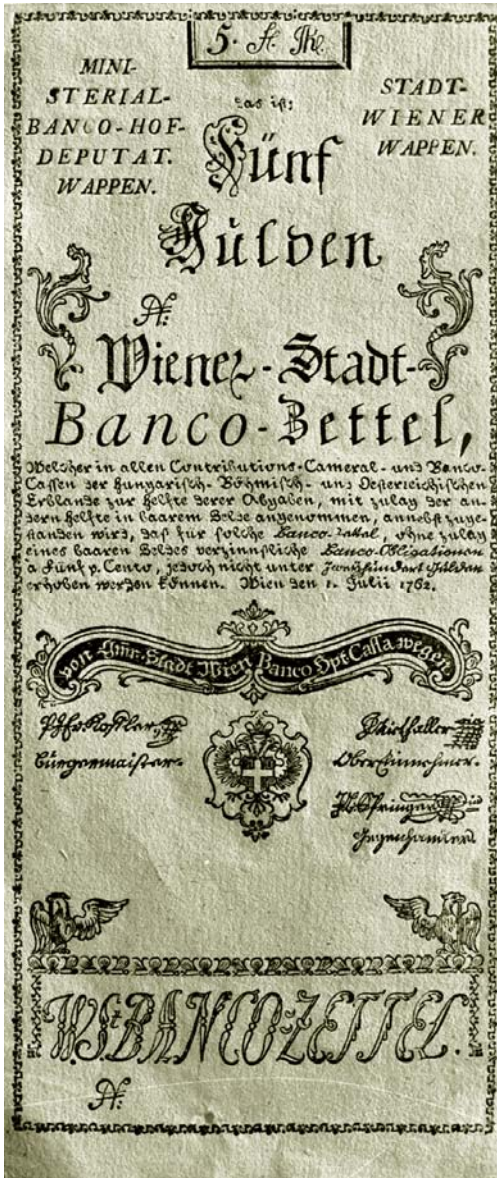 5. fl.
MINI-
STERIAL-
BANCO-HOF-
DEPUTAT.
WAPPEN.
STADT-
WIENER
WAPPEN.
das ist:
Fünf
Gulden
N:
Wiener-Stadt-
Banco-Zettel,
Welcher in allen Contributions-Cameral- und Banco-
Cassen der Hungarisch-Böhmisch- und Oesterreichischen
Erblande zur Helfte derer Abgaben, mit zulag der an-
dern Helfte in baarem Gelde angenommen, annebst zuge-
standen wird, daß für solche Banco-Zettel, ohne zulag
eines baaren Geldes verzinnsliche Banco-Obligationen
a Fünf p. Cento, jedoch nicht unter Zweyhundert Gulden
erhoben werden können. Wien den 1. Julii 1762.
von Stadt Wien Banco Hpt Cassa wegen
Burgermaister.
Ober Einnehmer.
Springer
Gegenhandler
W. St. BANCO-ZETTEL.
N: